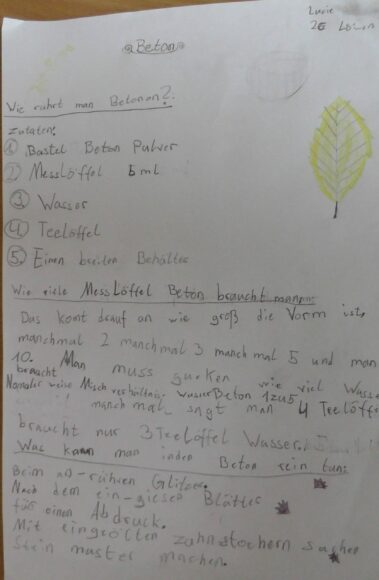 Lucie
2E
Beton
Wie rührt man Betonan?
Zutaten:
① Bastel Beton Pulver
② Messlöffel 5ml
③ Wasser
④ Teelöffel
⑤ Einen breiten Behälter
Wie viele Messlöffel Beton braucht man
Das komt drauf an wie groß die Vorm ist,
manchmal 2 manchmal 3 manchmal 5 und man
10. Man muss gucken wie viel Wasser
braucht
Normaler weise Misch verhältnis. Wasser Beton 1zu5
manchmal sagt man 4 Teelöffel
braucht nur 3 Teelöffel Wasser.
Was kann man inden Beton rein tun:
Beim an-rühren Glitzer.
Nach dem ein-giesen Blätter
für einen Abdruck.
Mit Zahnstochern
Stein muster machen.